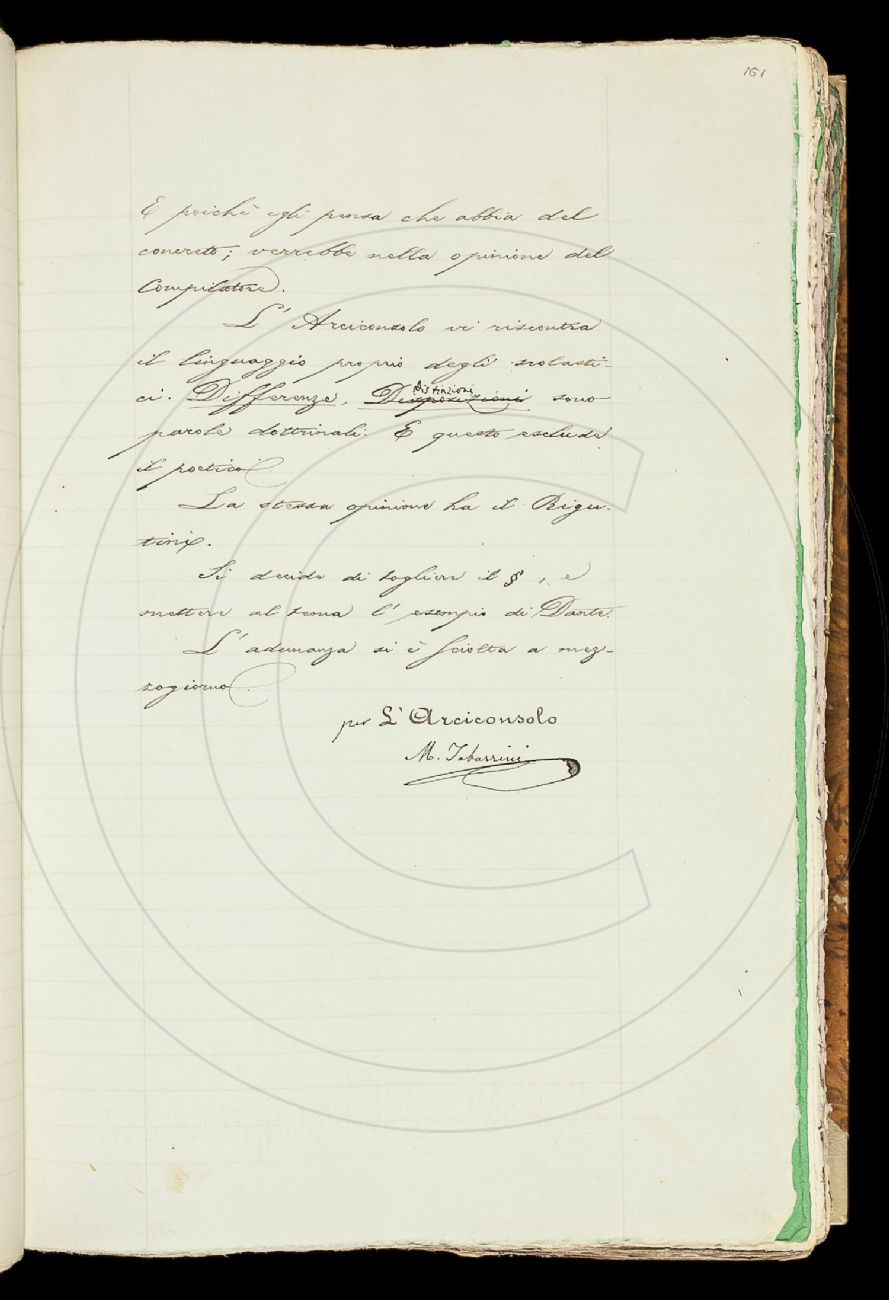 161
E poichè egli pensa che abbia del
concreto; verrebbe nella opinione del
Compilatore.
L' Arciconsolo vi riscontra
il linguaggio proprio degli scolasti-
ci. Differenze, Distinzioni sono
parole dottrinali. E questo esclude
il poetico.
La stessa opinione ha il Rigu-
tini.
Si decide di togliere il §, e
mettere al tema l' esempio di Dante.
L' adunanza si è sciolta a mez-
zogiorno.
per L' Arciconsolo
M. Tabarrini